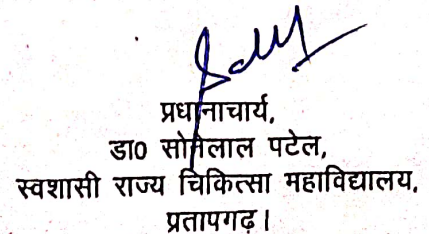 प्रधानाचार्य,
डा0 सोनेलाल पटेल,
स्वशासी राज्य चिकित्सा महाविद्यालय,
प्रतापगढ़।